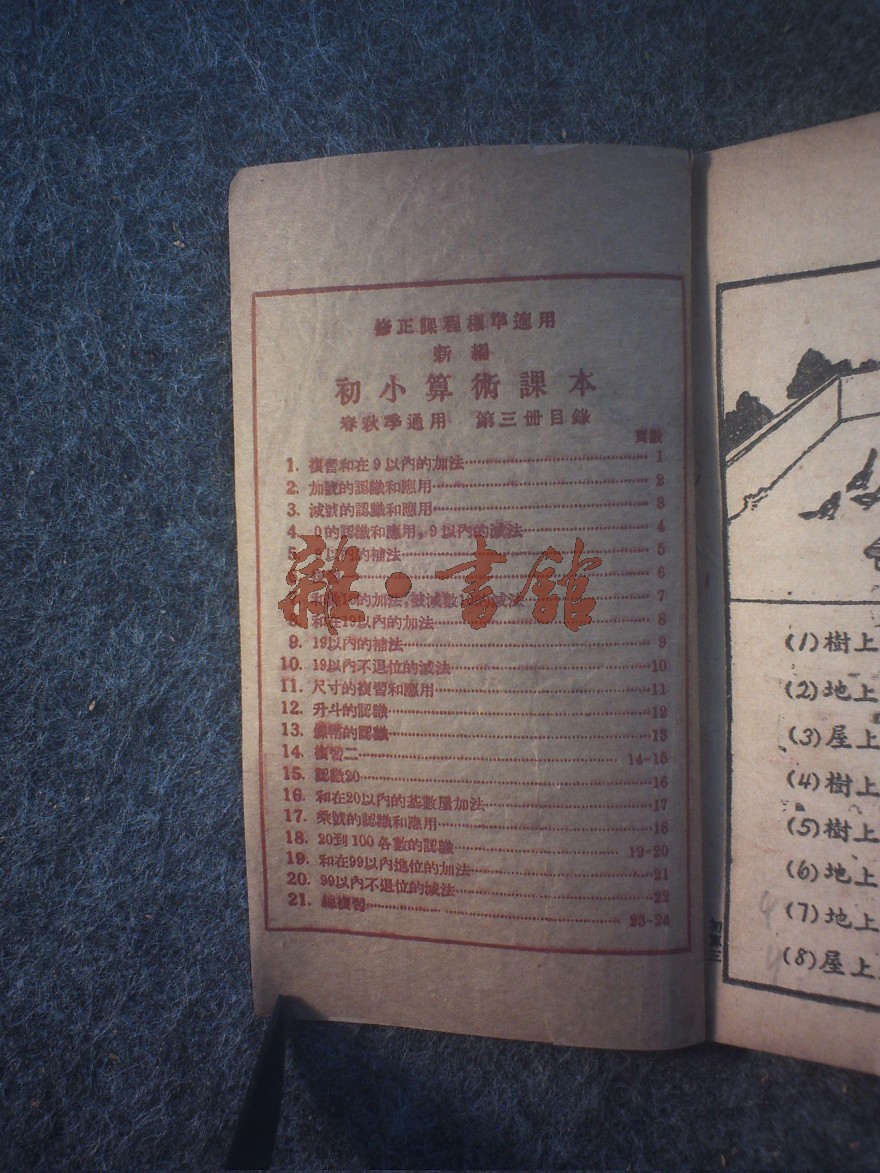 修正課程標準適用
新編
初小算術課本
春秋季通用 第三冊目錄
頁數
1. 複習和在9以內的加法……1
2. 加號的認識和應用……2
3. 減號的認識和應用……3
4. 0的認識和應用,9以內的減法……4
5. 以內的補法……5
6
的加法,被減數 的減法……7
8. 和在19以內的加法……8
9. 19以內的補法……9
10. 19以內不退位的減法……10
11. 尺寸的複習和應用……11
12. 升斗的認識……12
13. 的認識……13
14. 複習二……14-15
15. 認識20……16
16. 和在20以內的基數屢加法……17
17. 乘號的認識和應用……18
18. 20到100各數的認識……19-20
19. 和在99以內進位的加法……21
20. 99以內不退位的減法……22
21. 總複習……23-24
雜·書館
(1)樹上
(2)地上
(3)屋上
(4)樹上
(5)樹上
(6)地上
(7)地上
(8)屋上
初算三